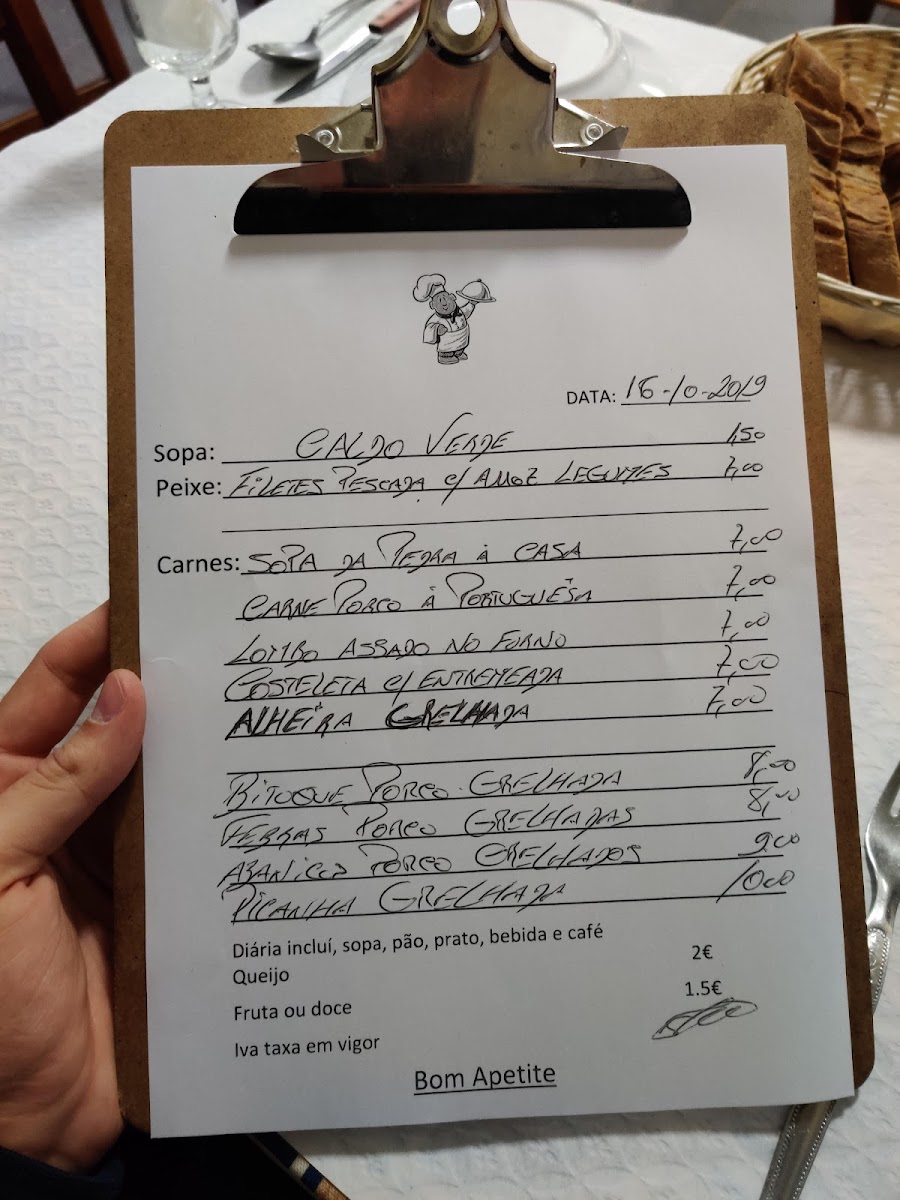 DATA: 16-10-2019
Sopa: CALDO VERDE 1,50
Peixe: FILETES PESCADA C/ ARROZ LEGUMES 7,00
Carnes: SOPA DA PEDRA À CASA 7,00
CARNE PORCO À PORTUGUÊSA 7,00
LOMBO ASSADO NO FORNO 7,00
COSTELETA C/ ENTREMEADA 7,00
ALHEIRA GRELHADA 7,00
BITOQUE PORCO GRELHADA 8,00
FEBRAS PORCO GRELHADAS 8,00
ABANICOS PORCO GRELHADOS 9,00
PICANHA GRELHADA 10,00
Diária incluí, sopa, pão, prato, bebida e café
Queijo 2€
Fruta ou doce 1.5€
Iva taxa em vigor
Bom Apetite